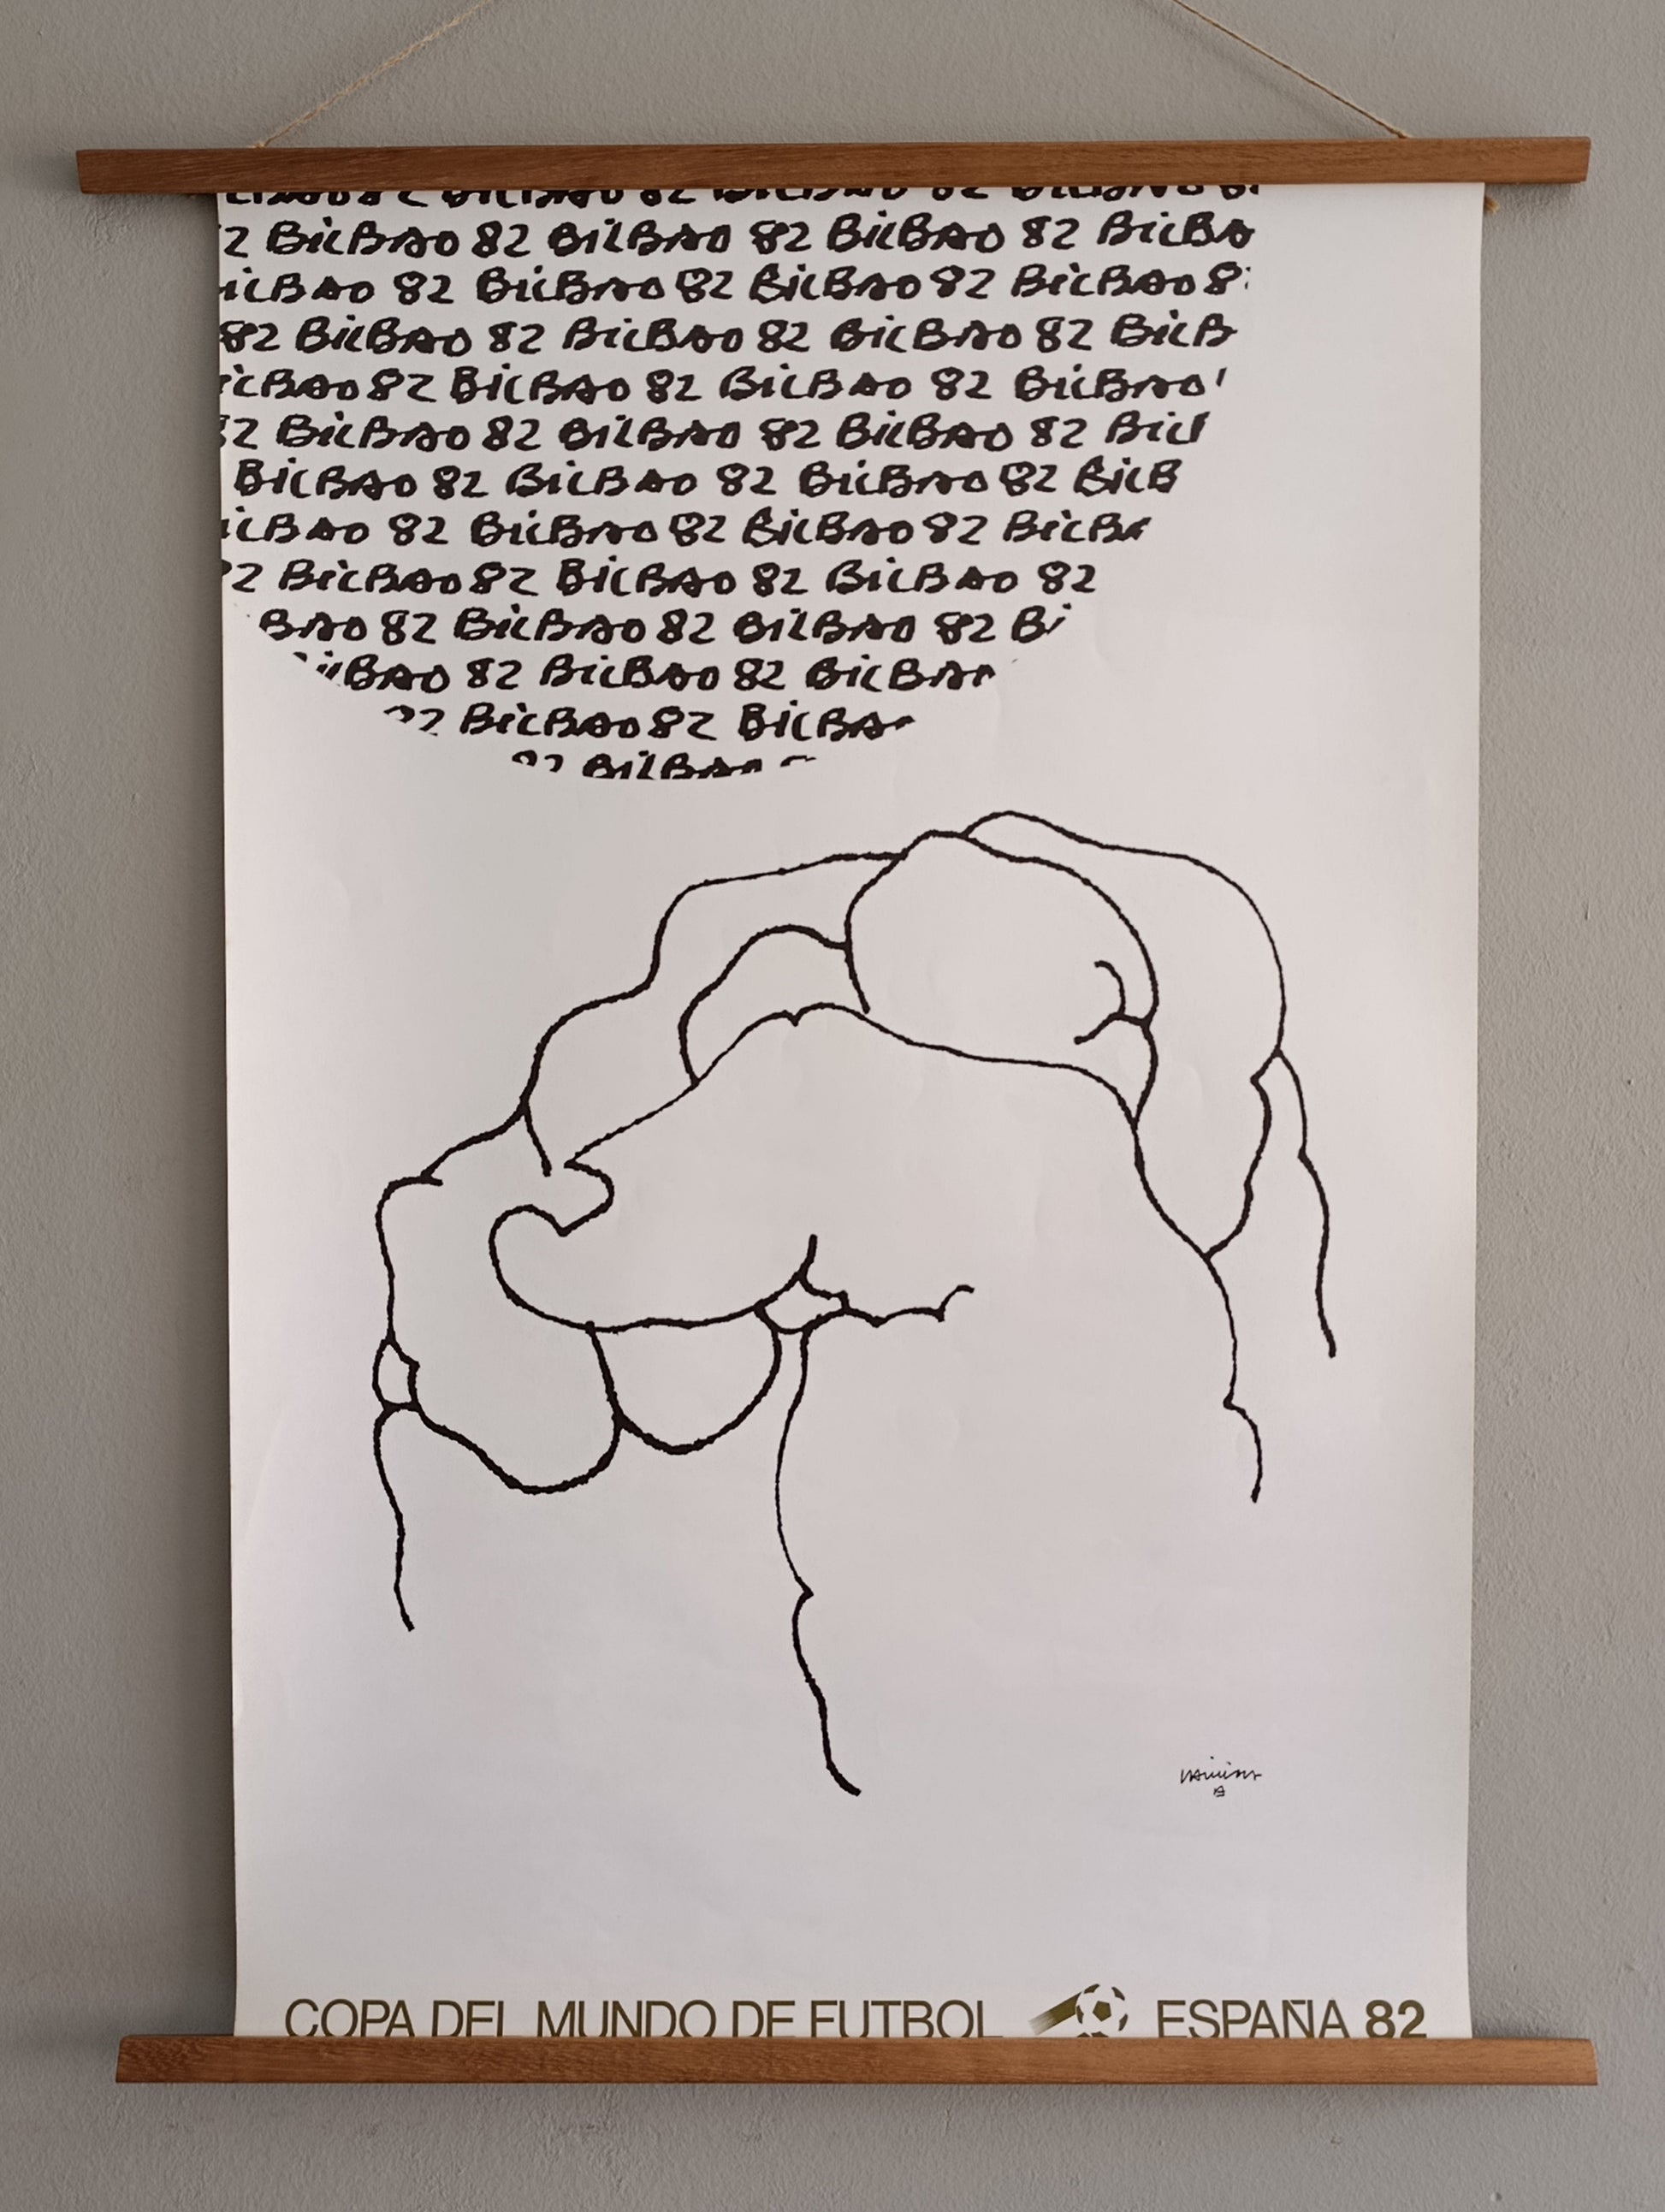 BiLBAO 82 BiLBAO 82 BiLBAO 82 BiLBAO 8
2 BiLBAO 82 BiLBAO 82 BiLBAO 82 BiLBA
iLBAO 82 BiLBAO 82 BiLBAO 82 BiLBAO 8
82 BiLBAO 82 BiLBAO 82 BiLBAO 82 BiLB
iLBAO 82 BiLBAO 82 BiLBAO 82 BiLBAO
82 BiLBAO 82 BiLBAO 82 BiLBAO 82 BiL
BiLBAO 82 BiLBAO 82 BiLBAO 82 BiLB
iLBAO 82 BiLBAO 82 BiLBAO 82 BiLBA
2 BiLBAO 82 BiLBAO 82 BiLBAO 82
BAO 82 BiLBAO 82 BiLBAO 82 Bi
iLBAO 82 BiLBAO 82 BiLBAO
82 BiLBAO 82 BiLBAO
82 BiLBAO
COPA DEL MUNDO DE FUTBOL ESPAÑA 82